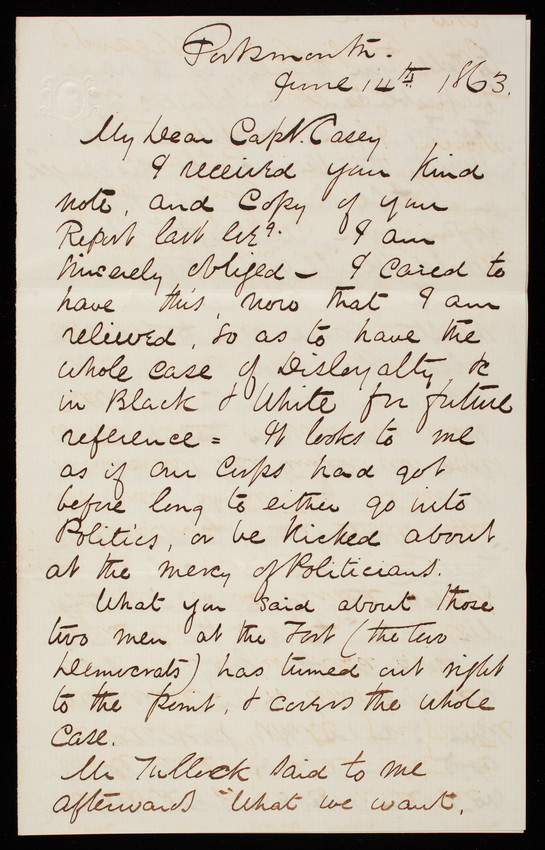 Portsmouth.
June 14th 1863.
My Dear Capt. Casey
I received your kind
note, and Copy of your
Report last evg. I am
sincerely obliged — I cared to
have this, now that I am
relieved, so as to have the
whole case of Disloyalty, &c
in Black & White for future
reference = It looks to me
as if our Corps had got
before long to either go into
Politics, or be kicked about
at the mercy of Politicians.
What you said about those
two men at the Fort (the two
Democrats) has turned out right
to the point, & covers the whole
case.
Mr Tullock said to me
afterwards "What we want,